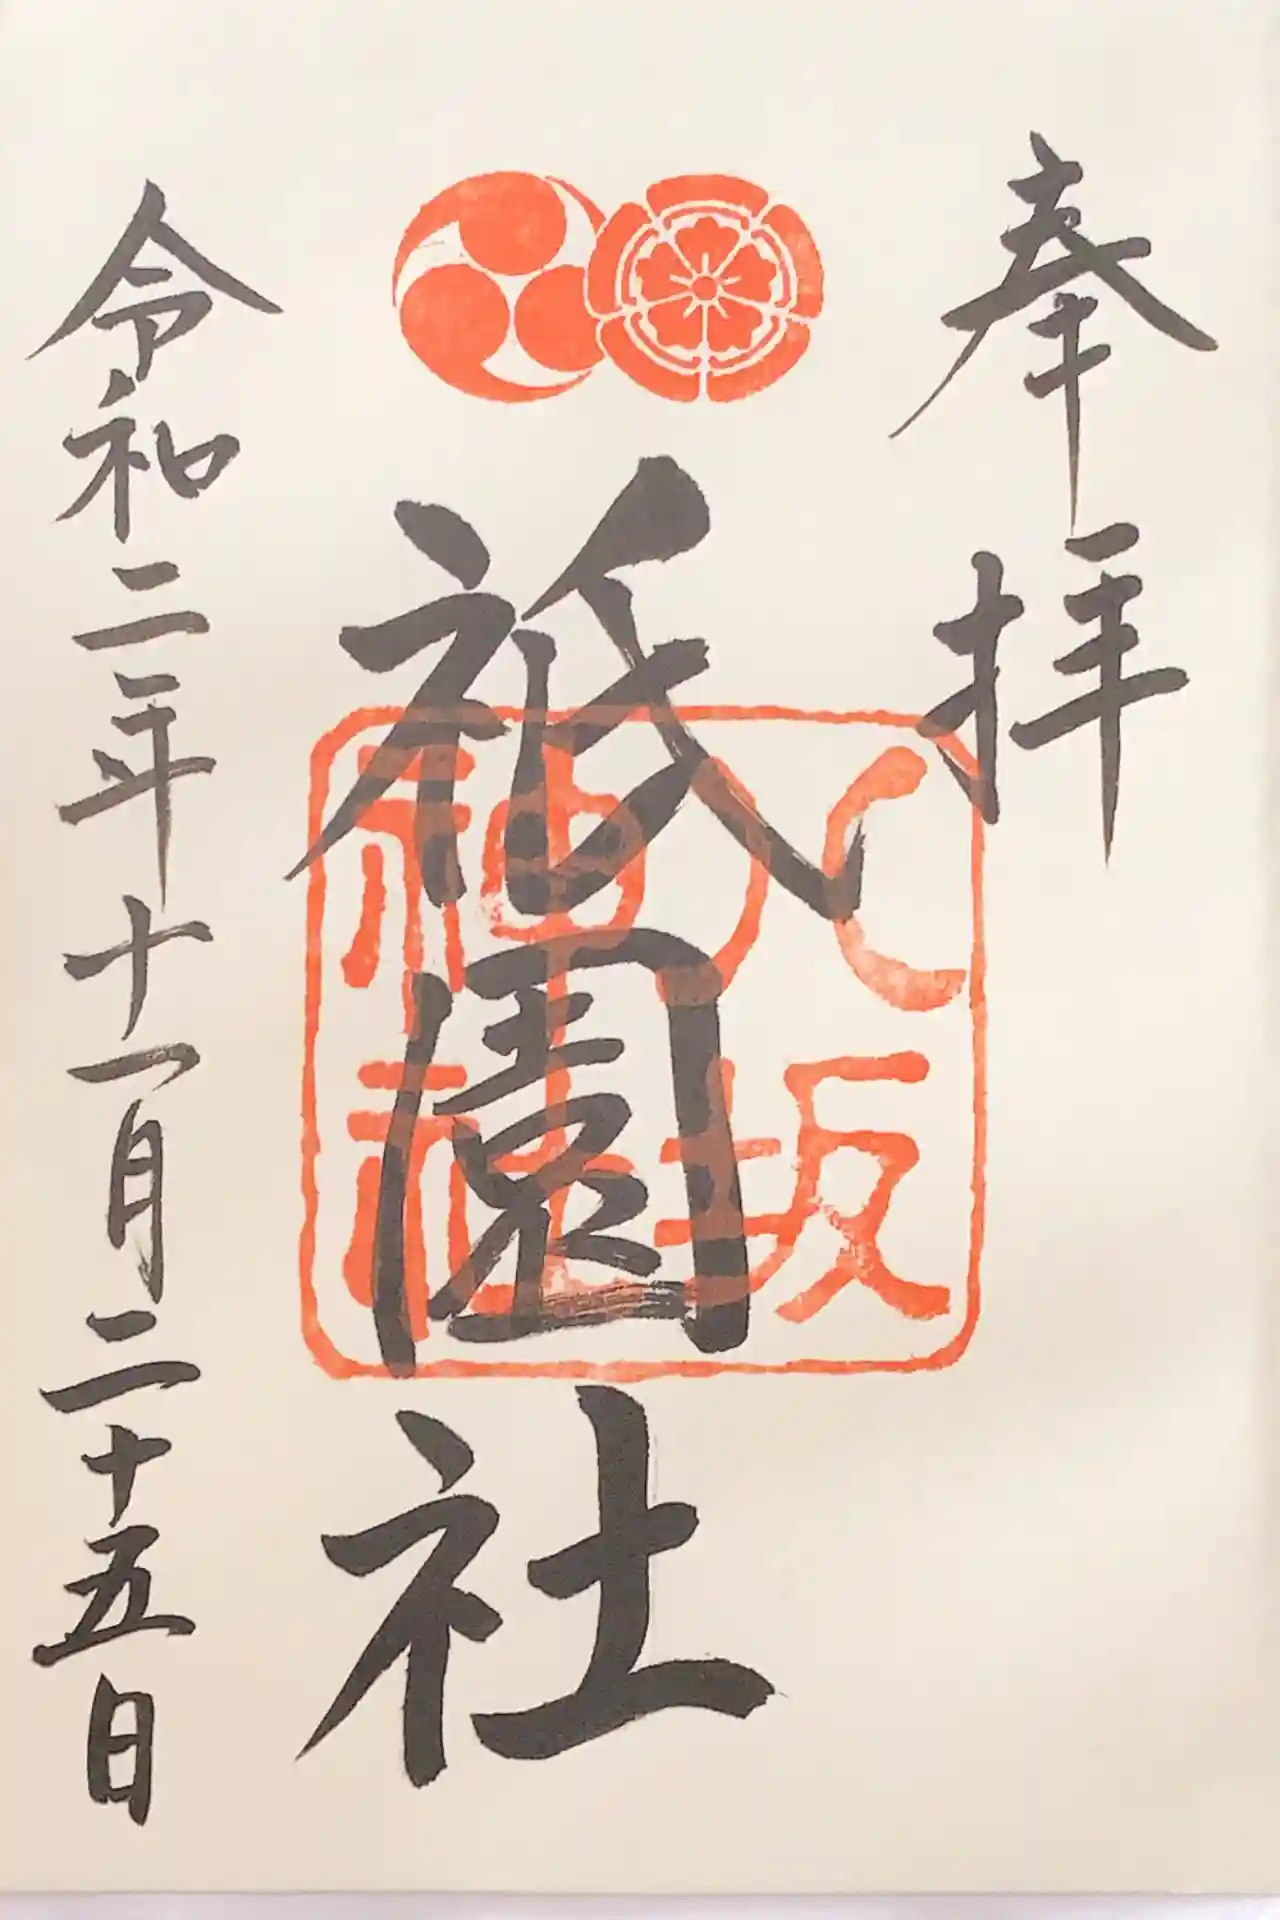 奉拝
祇園社
八坂
神社
令和二年十一月二十五日